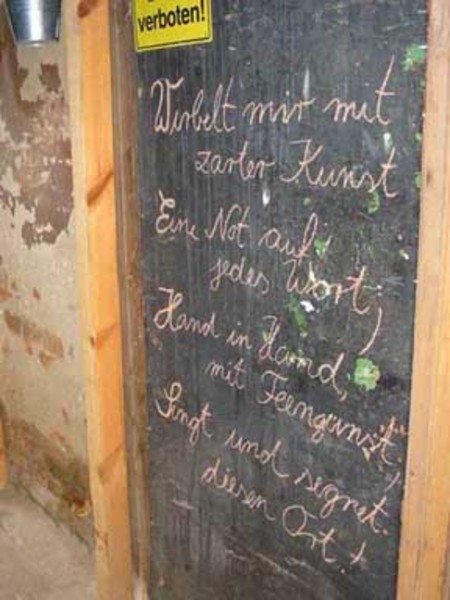 verboten!
Wirbelt mir mit
zarter Kunst
Eine Not auf
jedes Wort;
Hand in Hand,
mit Feengunst
Singt und segnet
diesen Ort!